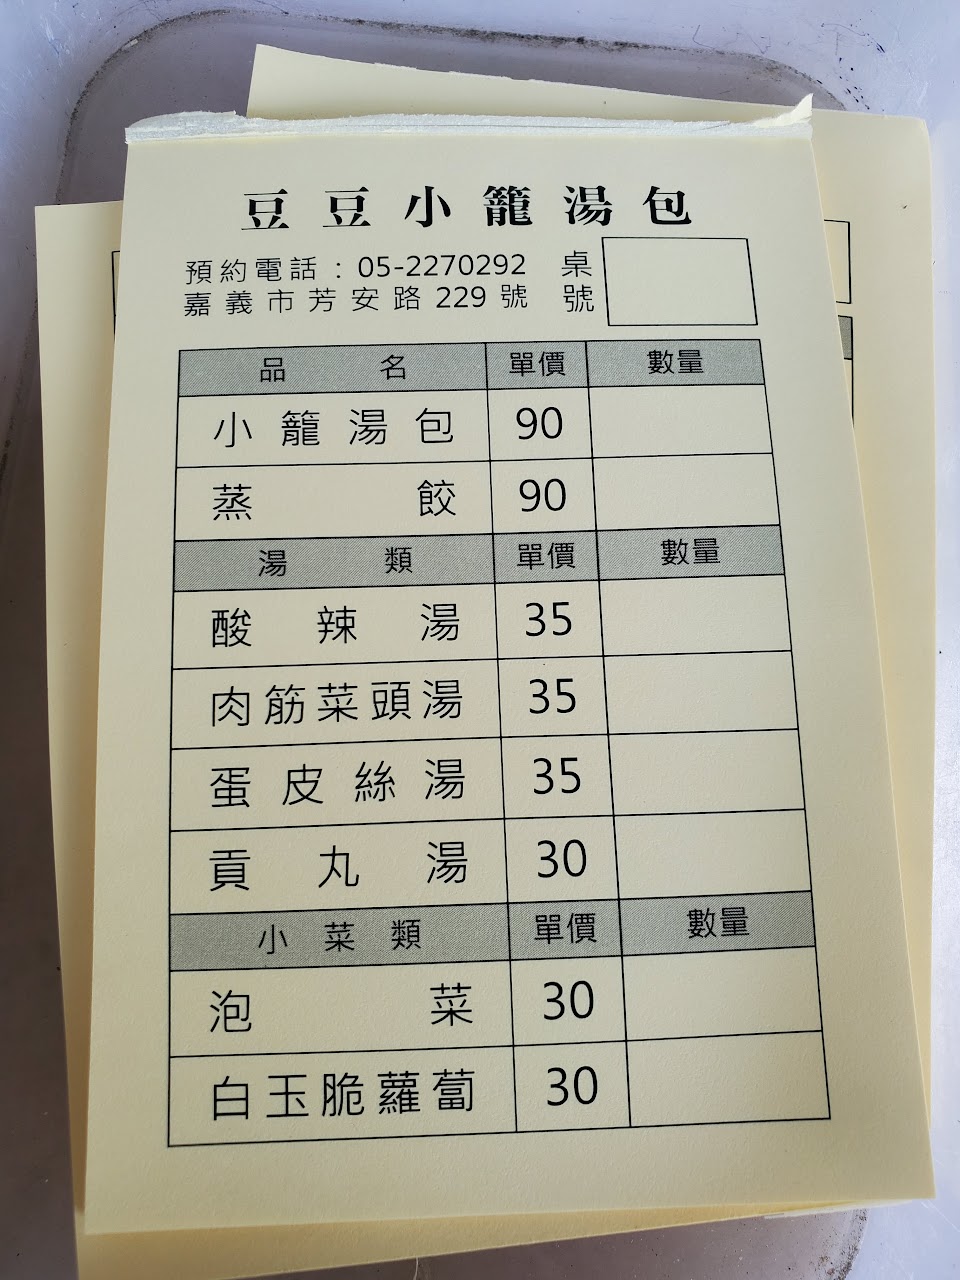 豆豆小籠湯包
預約電話：05-2270292
嘉義市芳安路229號
桌號
品名 單價 數量
小籠湯包 90
蒸餃 90
湯類 單價 數量
酸辣湯 35
肉筋菜頭湯 35
蛋皮絲湯 35
貢丸湯 30
小菜類 單價 數量
泡菜 30
白玉脆蘿蔔 30